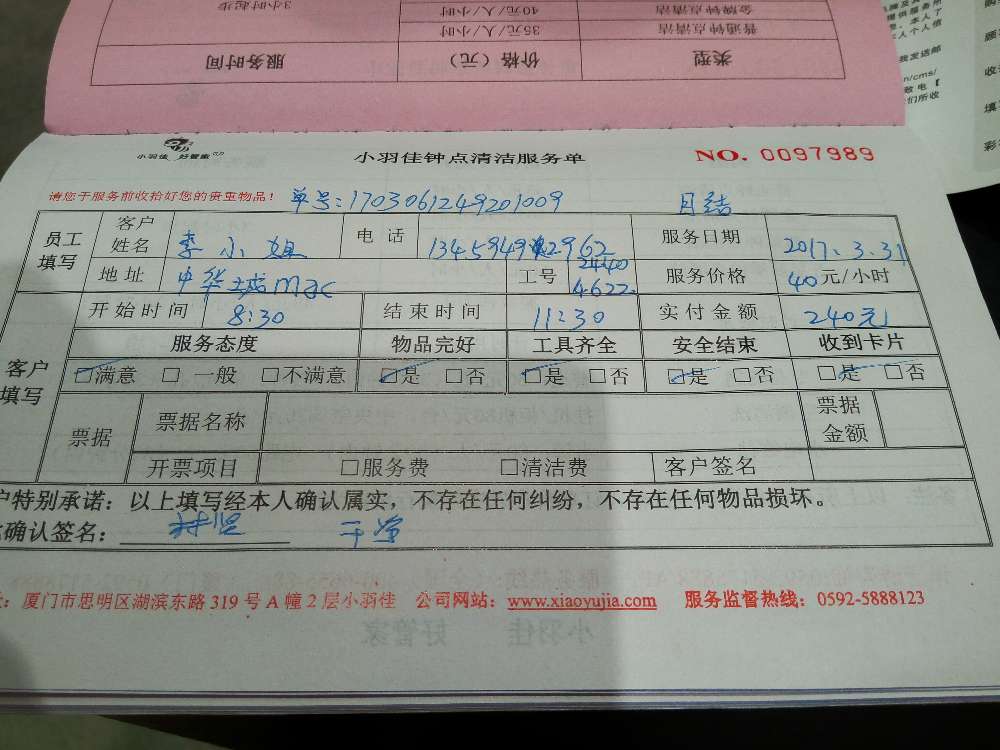 3小时起步
金牌钟点清洁 40元/人/小时
普通钟点清洁 35元/人/小时
类型 价格（元） 服务时间
小羽佳 好管家
小羽佳钟点清洁服务单
NO. 0097989
请您于服务前收拾好您的贵重物品！ 单号:1703061249201009 月结
员工填写 客户姓名 李小姐 电话 服务日期 2017.3.31
地址 中华城mac 工号 2440 4622 服务价格 40元/小时
开始时间 8:30 结束时间 11:30 实付金额 240元
客户填写 服务态度 物品完好 工具齐全 安全结束 收到卡片
□满意 □一般 □不满意 □是 □否 □是 □否 □是 □否 □是 □否
票据 票据名称 票据金额
开票项目 □服务费 □清洁费 客户签名
户特别承诺：以上填写经本人确认属实，不存在任何纠纷，不存在任何物品损坏。
确认签名： 干净
：厦门市思明区湖滨东路 319 号 A 幢 2 层小羽佳 公司网站：www.xiaoyujia.com 服务监督热线：0592-5888123